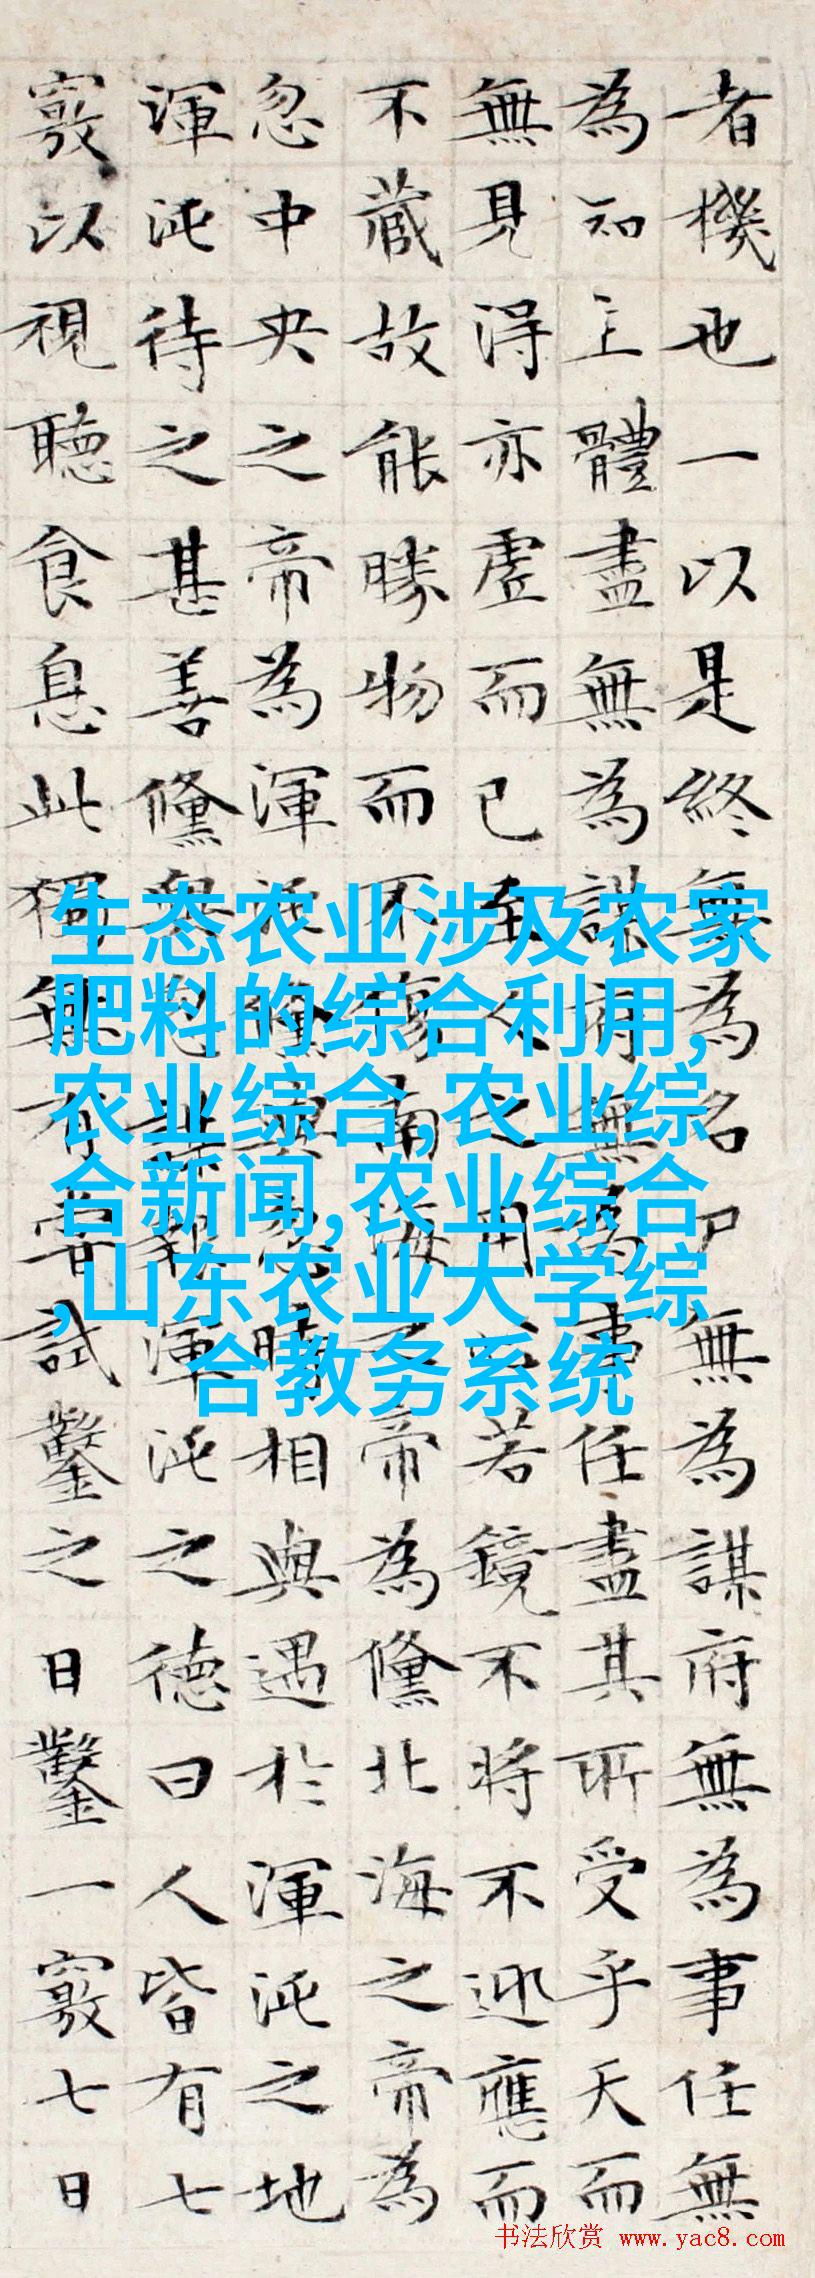 者機也一以是終無為名尸無為謀府無為事任無
為知主體盡無為謀府無為事任盡其所受乎天而
無見得亦虛而已至人之用心若鏡不将不迎應而
不藏故能勝物而不傷南海之帝為儵北海之帝為
忽中央之帝為渾沌儵與忽時相與遇於渾沌之地
渾沌待之甚善儵與忽謀報渾沌之德曰人皆有七
竅以視聽食息此獨無有嘗試鑿之日鑿一竅七日
生态农业涉及农家
肥料的综合利用,
农业综合,农业综
合新闻,农业综合
,山东农业大学综
合教务系统
书法欣赏 www.yac8.com